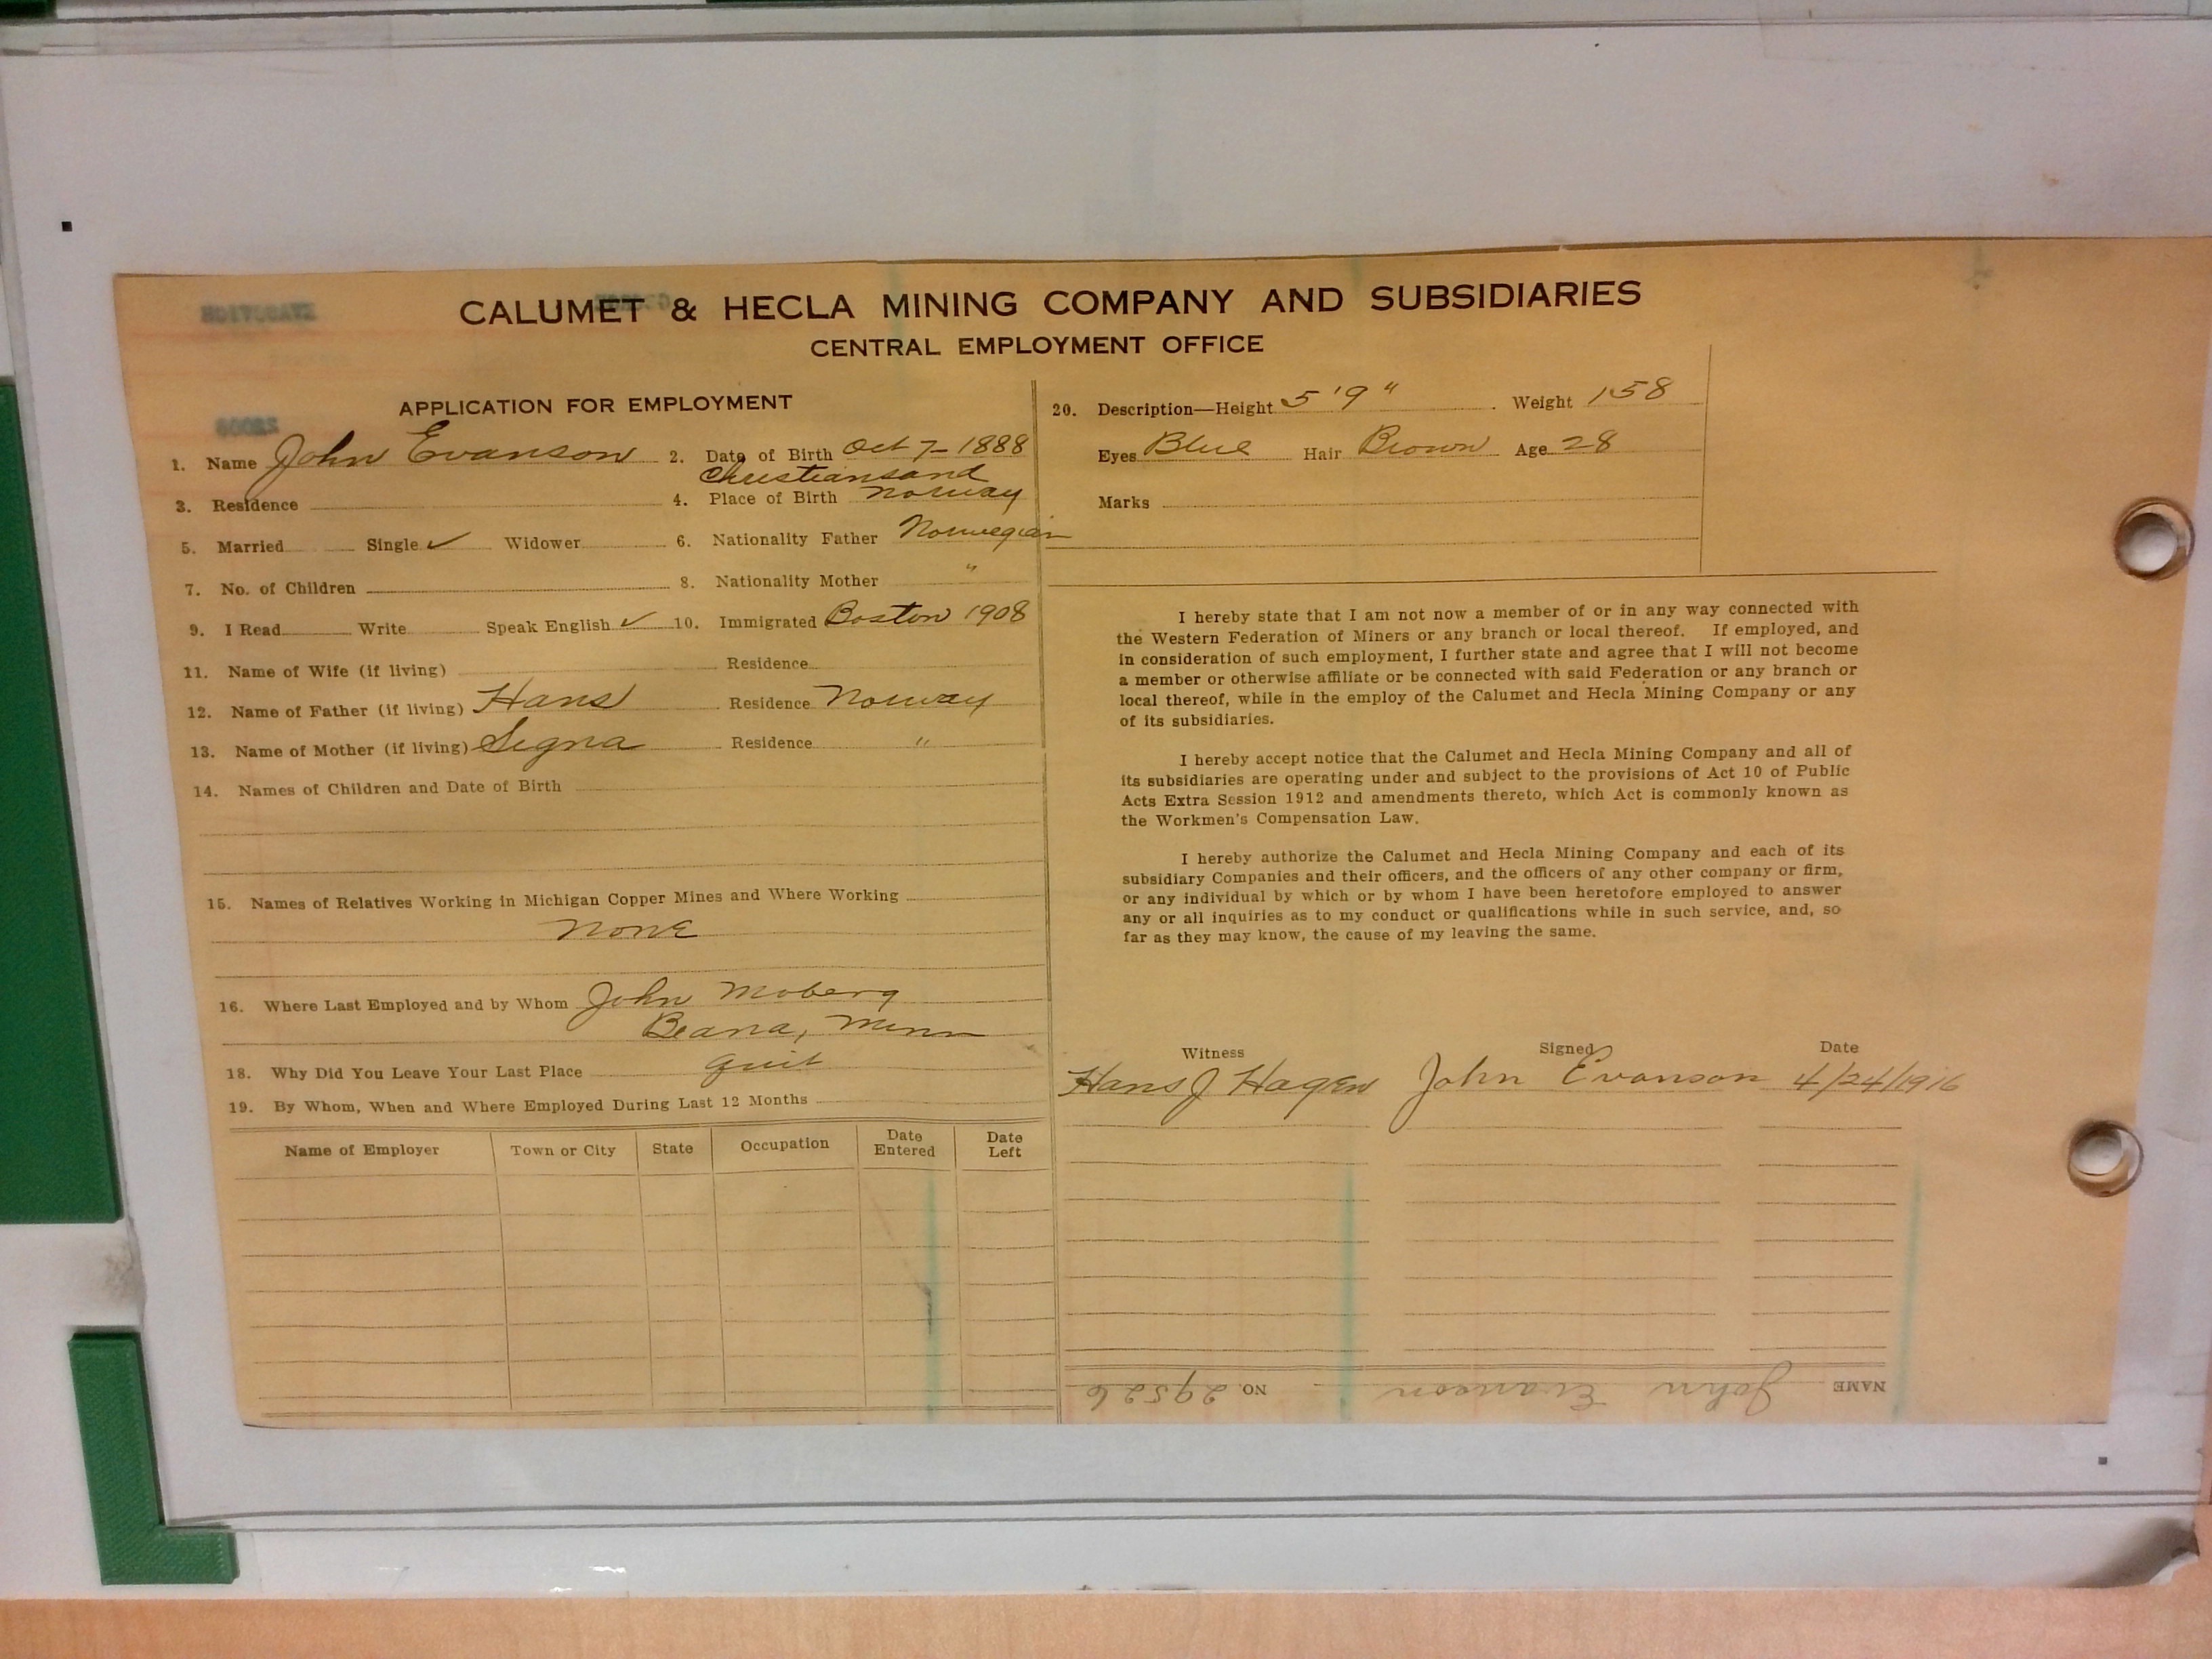 CALUMET & HECLA MINING COMPANY AND SUBSIDIARIES
CENTRAL EMPLOYMENT OFFICE
APPLICATION FOR EMPLOYMENT
1. Name John Evanson 2. Date of Birth Oct 7-1888
Christiansand
3. Residence 4. Place of Birth Norway
5. Married Single ✓ Widower 6. Nationality Father Norwegian
7. No. of Children 8. Nationality Mother "
9. I Read Write Speak English ✓ 10. Immigrated Boston 1908
11. Name of Wife (if living) Residence
12. Name of Father (if living) Hans Residence Norway
13. Name of Mother (if living) Segna Residence "
14. Names of Children and Date of Birth
15. Names of Relatives Working in Michigan Copper Mines and Where Working
None
16. Where Last Employed and by Whom John Moberg
Beana, Minn
18. Why Did You Leave Your Last Place quit
19. By Whom, When and Where Employed During Last 12 Months
Name of Employer Town or City State Occupation Date Entered Date Left
20. Description—Height 5'9" Weight 158
Eyes Blue Hair Brown Age 28
Marks
I hereby state that I am not now a member of or in any way connected with
the Western Federation of Miners or any branch or local thereof. If employed, and
in consideration of such employment, I further state and agree that I will not become
a member or otherwise affiliate or be connected with said Federation or any branch or
local thereof, while in the employ of the Calumet and Hecla Mining Company or any
of its subsidiaries.
I hereby accept notice that the Calumet and Hecla Mining Company and all of
its subsidiaries are operating under and subject to the provisions of Act 10 of Public
Acts Extra Session 1912 and amendments thereto, which Act is commonly known as
the Workmen's Compensation Law.
I hereby authorize the Calumet and Hecla Mining Company and each of its
subsidiary Companies and their officers, and the officers of any other company or firm,
or any individual by which or by whom I have been heretofore employed to answer
any or all inquiries as to my conduct or qualifications while in such service, and, so
far as they may know, the cause of my leaving the same.
Witness Signed Date
Hans J Hagen John Evanson 4/24/1916
NAME John Evanson NO. 29526